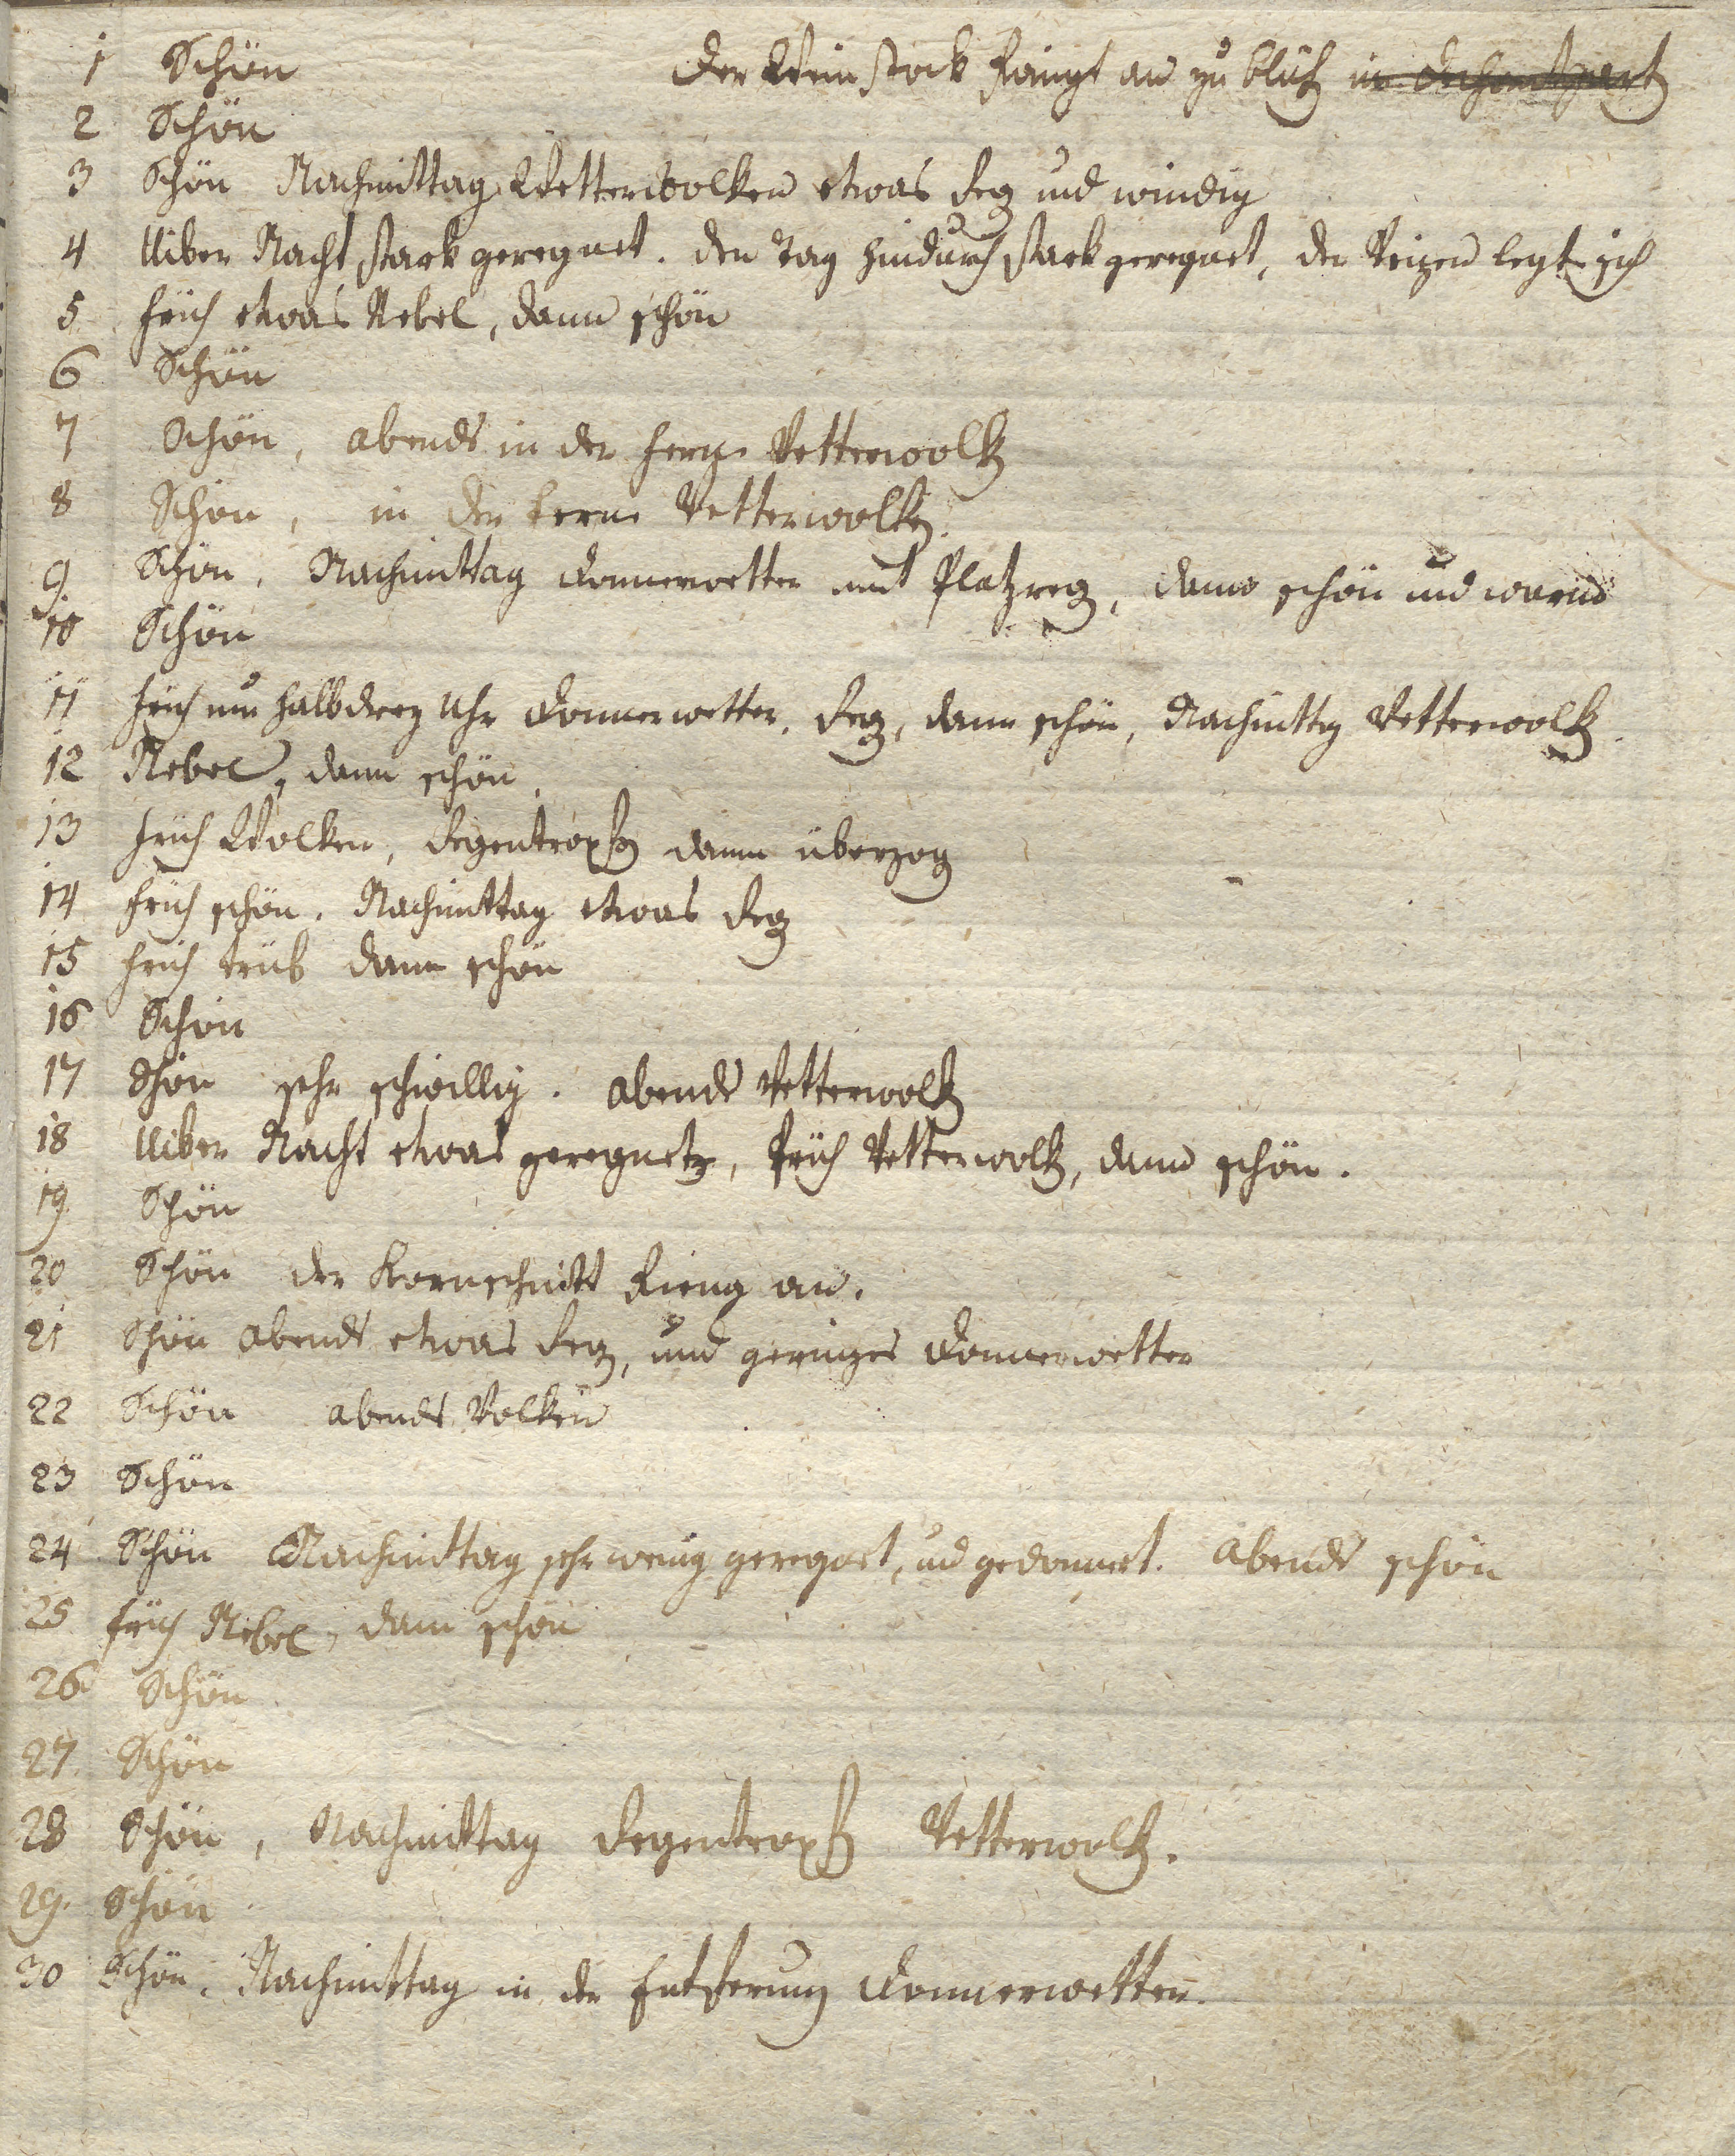 1 Schön Der Weinstock fangt an zu blühen
2 Schön
3 Schön Nachmittag Wetterwolken etwas Regen und windig
4 Uiber Nacht stark geregnet. den Tag hindurch stark geregnet, der Weizen legt sich
5 früh etwas Nebel, dann schön
6 Schön
7 Schön, abends in der ferne Wetterwolken
8 Schön, in der ferne Wetterwolken.
9 Schön. Nachmittag Donnerwetter mit Platzregen, dann schön und warm
10 Schön
11 früh um halbdrey Uhr Donnerwetter. Regen, dann schön, Nachmittag Wetterwolken.
12 Nebel, dann schön.
13 früh Wolken, Regentropfen dann überzog
14 früh schön. Nachmittag etwas Regen
15 früh trüb dann schön
16 Schön
17 Schön sehr schwillig. abends Wetterwolken
18 Uiber Nacht etwas geregnet, früh Wetterwolken, dann schön.
19. Schön
20 Schön der Kornschnitt fieng an.
21 Schön abends etwas Regen, und geringes Donnerwetter
22 Schön abends Wolken
23 Schön
24 Schön Nachmittag sehr wenig geregnet, und gedonnert. abends schön
25 früh Nebel, dann schön
26 Schön
27. Schön
28 Schön, Nachmittag Regentropfen Wetterwolken.
29. Schön
30 Schön. Nachmittag in der Entferung Donnerwetter.